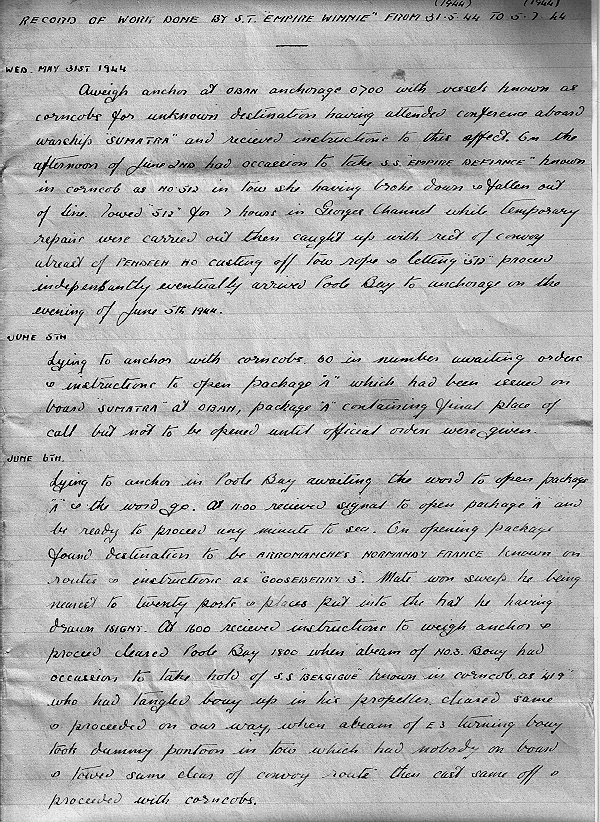 (1944) (1944)
RECORD OF WORK DONE BY S.T. "EMPIRE WINNIE" FROM 31·5·44 TO 5·7·44
WED. MAY 31ST 1944
Aweigh anchor at OBAN anchorage 0700 with vessels known as
corncobs for unknown destination having attended conference aboard
warship SUMATRA" and recieved instructions to this effect. On the
afternoon of June 2ND had occassion to take S.S. EMPIRE DEFIANCE" known
in corncob as NO 512 in tow she having broke down & fallen out
of line. Towed "512" for 7 hours in Georges Channel while temporary
repairs were carried out then caught up with rest of convoy
abreast of PENDEEN HD casting off tow rope & letting "512" proceed
independantly eventually arrived Poole Bay to anchorage on the
evening of June 5th 1944.
JUNE 5TH
Lying to anchor with corncobs 60 in number awaiting orders
& instructions to open package "A" which had been issued on
board SUMATRA" at OBAN, package "A" containing final place of
call but not to be opened until official orders were given.
JUNE 6TH.
Lying to anchor in Poole Bay awaiting the word to open package
"A" & the word go. At 1100 recieved signal to open package "A" and
be ready to proceed any minute to sea. On opening package
found destination to be ARROMANCHES NORMANDY FRANCE known on
routes & instructions as "GOOSEBERRY 3". Mate won sweep he being
nearest to twenty ports & places put into the hat he having
drawn ISIGNY. At 1600 recieved instructions to weigh anchor &
proceed cleared Poole Bay 1800 when abeam of NO.3. Bouy had
occassion to take hold of S.S "BELGIQUE" known in corncob as 419"
who had tangled bouy up in his propeller, cleared same
& proceeded on our way, when abeam of E3 turning bouy
took dummy pontoon in tow which had nobody on board
& towed same clear of convoy route then cast same off &
proceeded with corncobs.